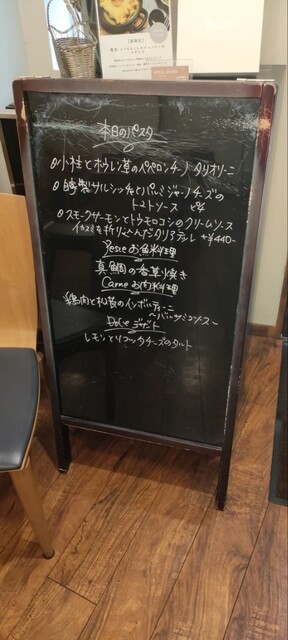 本日のパスタ
小柱とホウレン草のペペロンチーノ タリオリーニ
自家製サルシッチャとパルミジャーノチーズの
トマトソース
スモークサーモンとトウモロコシのクリームソース
イカスミを折りこんだタリアテレ +¥440-
Pesce お魚料理
真鯛の香草焼き
Carne お肉料理
鶏肉と松茸のインボルティーニ
~バルサミコソース~
Dolce デザート
レモンとリコッタチーズのタルト